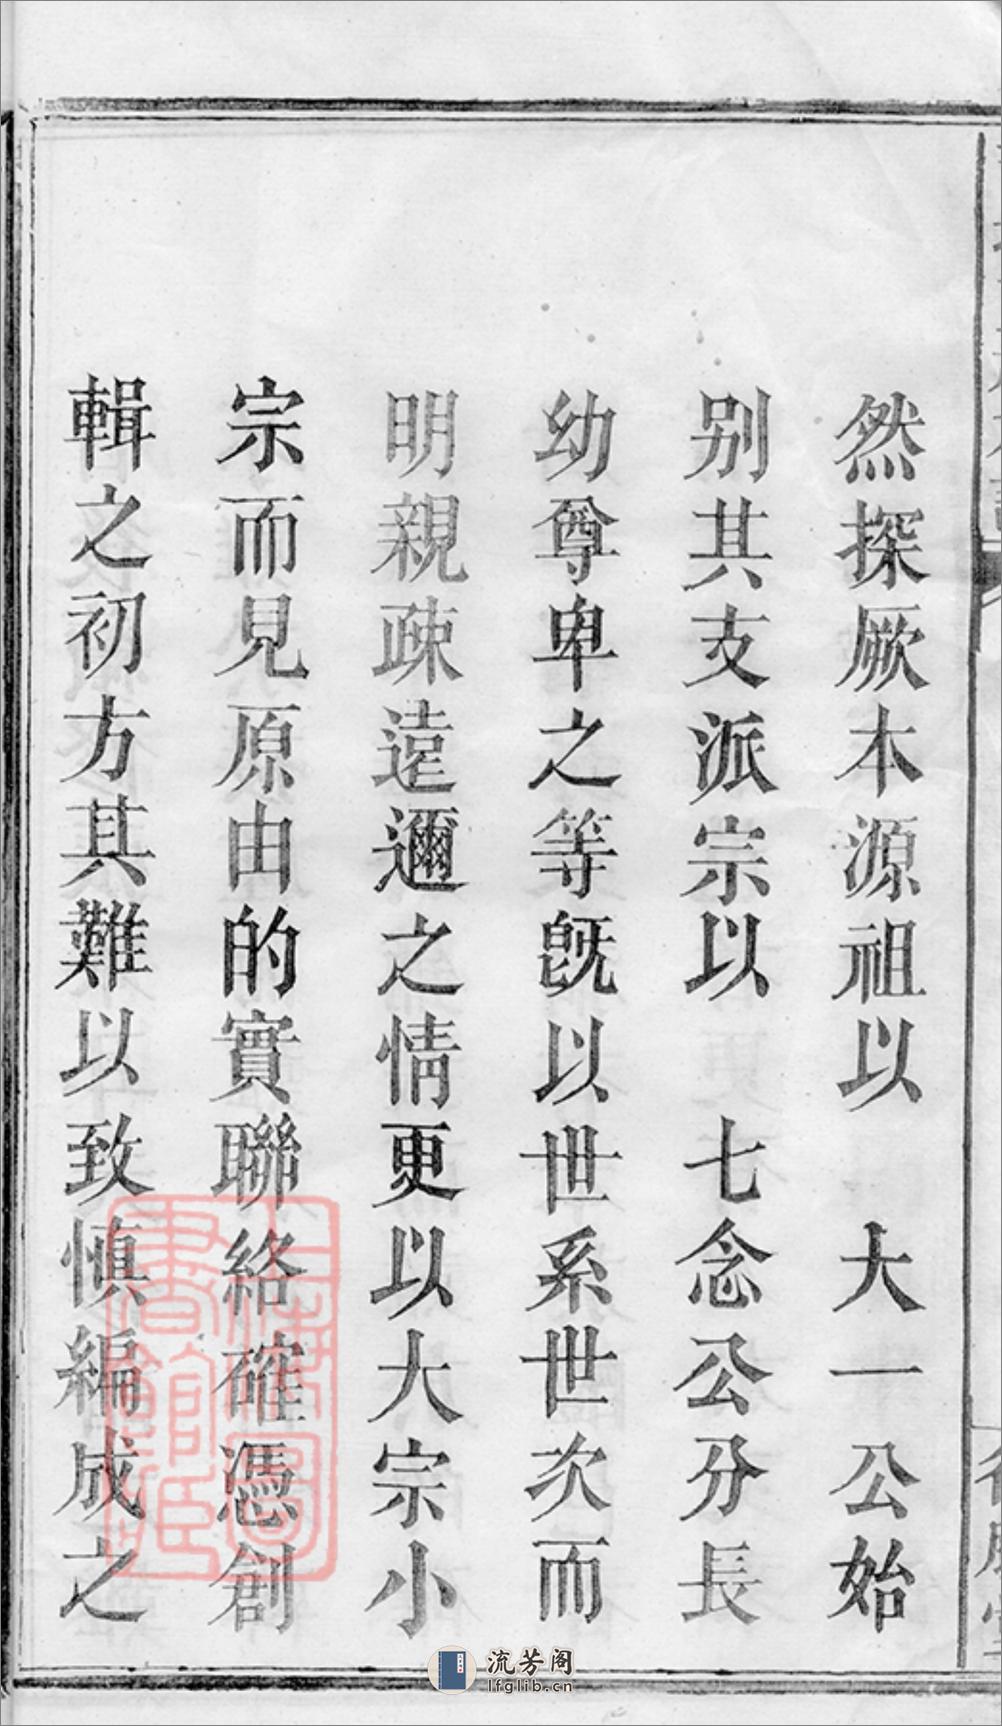 然探厥本源祖以　大一公始
别其支派宗以　七念公分長
幼尊卑之等旣以世系世次而
明親疎遠邇之情更以大宗小
宗而見原由的實聯絡確憑創
輯之初方其難以致慎編成之
上海圖
書館藏
流芳阁
lfglib.cn